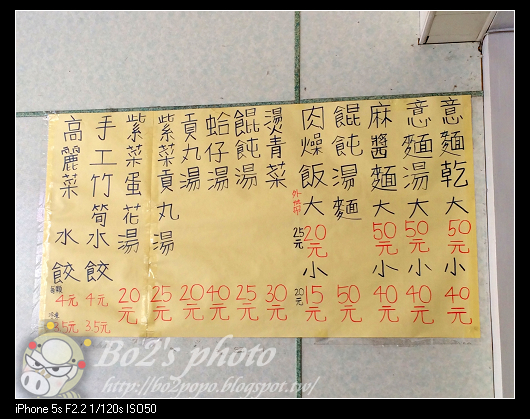 意麵乾大50元小40元
意麵湯大50元小40元
麻醬麵大50元小40元
餛飩湯麵50元
肉燥飯大20元小15元
外帶
25元
20元
燙青菜30元
餛飩湯25元
蛤仔湯40元
貢丸湯20元
紫菜貢丸湯25元
紫菜蛋花湯20元
手工竹筍水餃4元
3.5元
高麗菜水餃
4元
3.5元
Bo2's photo
http://bo2popo.blogspot.tw/
iPhone 5s F2.2 1/120s ISO50